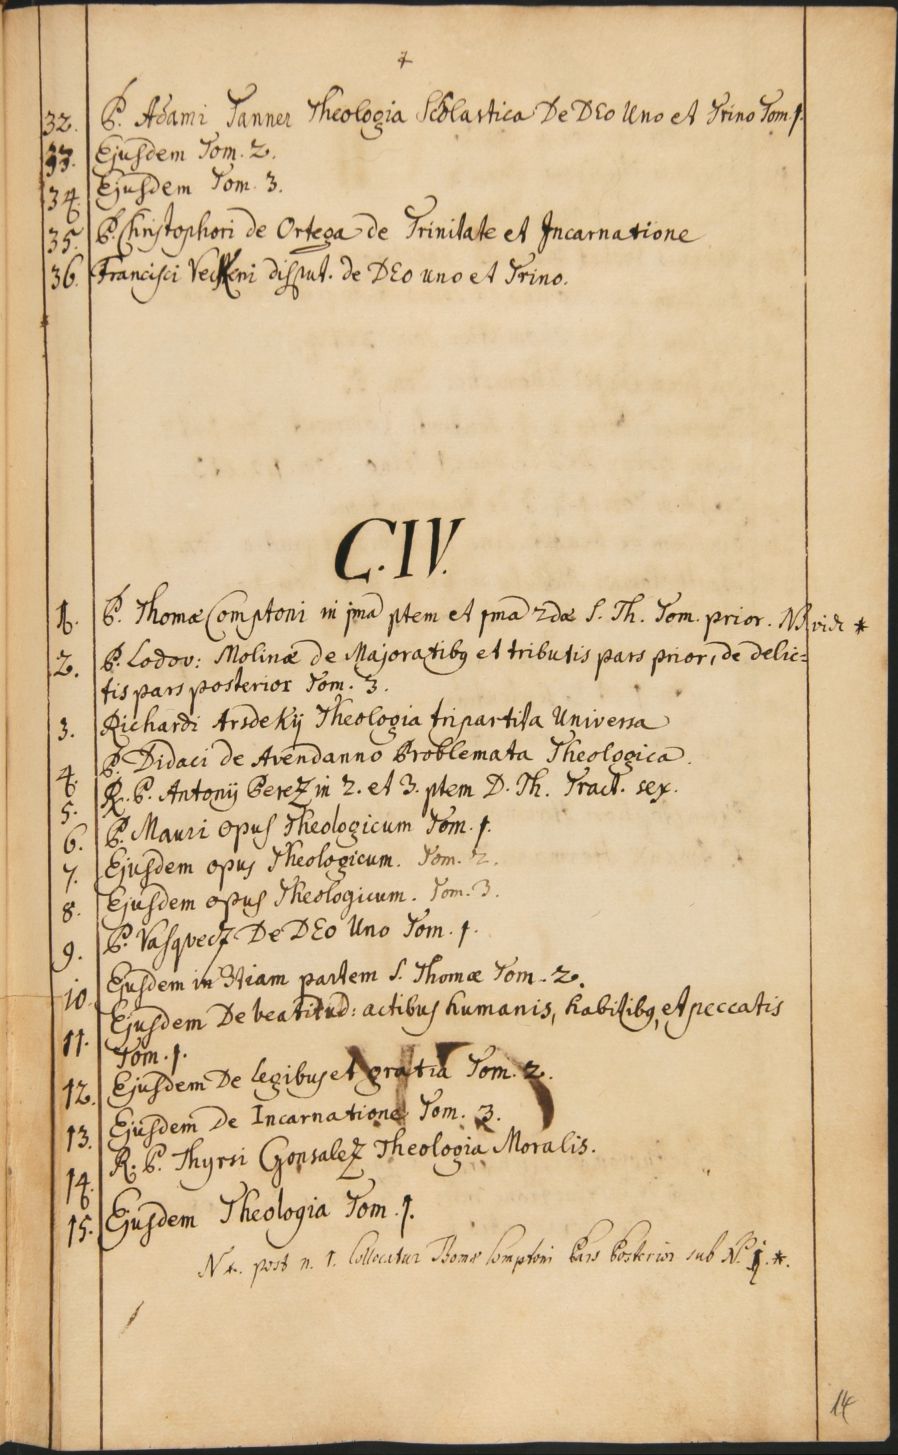 32. P. Adami Tanner Theologia Scolastica De DEo Uno et Trino Tom. 1.
33. Ejusdem Tom. 2.
34. Ejusdem Tom. 3.
35. P. Christophori de Ortega de Trinitate et Incarnatione
36. Francisci disput. de DEo uno et Trino.
C. IV.
1. P. Thomæ Comptoni in pma ptem et pma 2dæ S. Th. Tom. prior. NB vide *
2. P. Lodov: Molinæ de Majoratibq et tributis pars prior, de delic=
tis pars posterior Tom. 3.
3. Richardi Arsdekij Theologia tripartita Universa
4. P. Didaci de Avendanno Problemata Theologica.
5. R. P. Antonij Perez in 2. et 3. ptem D. Th. Tract. sex.
6. P. Mauri opus Theologicum Tom. 1.
7. Ejusdem opus Theologicum. Tom. 2.
8. Ejusdem opus Theologicum. Tom. 3.
9. P. Vasqvecz De DEo Uno Tom. 1.
10. Ejusdem in 3tiam partem S. Thomæ Tom. 2.
11. Ejusdem De beatitud: actibus humanis, habitibq, et peccatis
Tom. 1.
12. Ejusdem De legibus et gratia Tom. 2.
13. Ejusdem De Incarnatione Tom. 3.
14. R. P. Thyrsi Gonsalez Theologia Moralis.
15. Ejusdem Theologia Tom. 1.
post n. 1. Collocatur Thomæ Comptoni Pars Posterior sub N. 1. *.
14